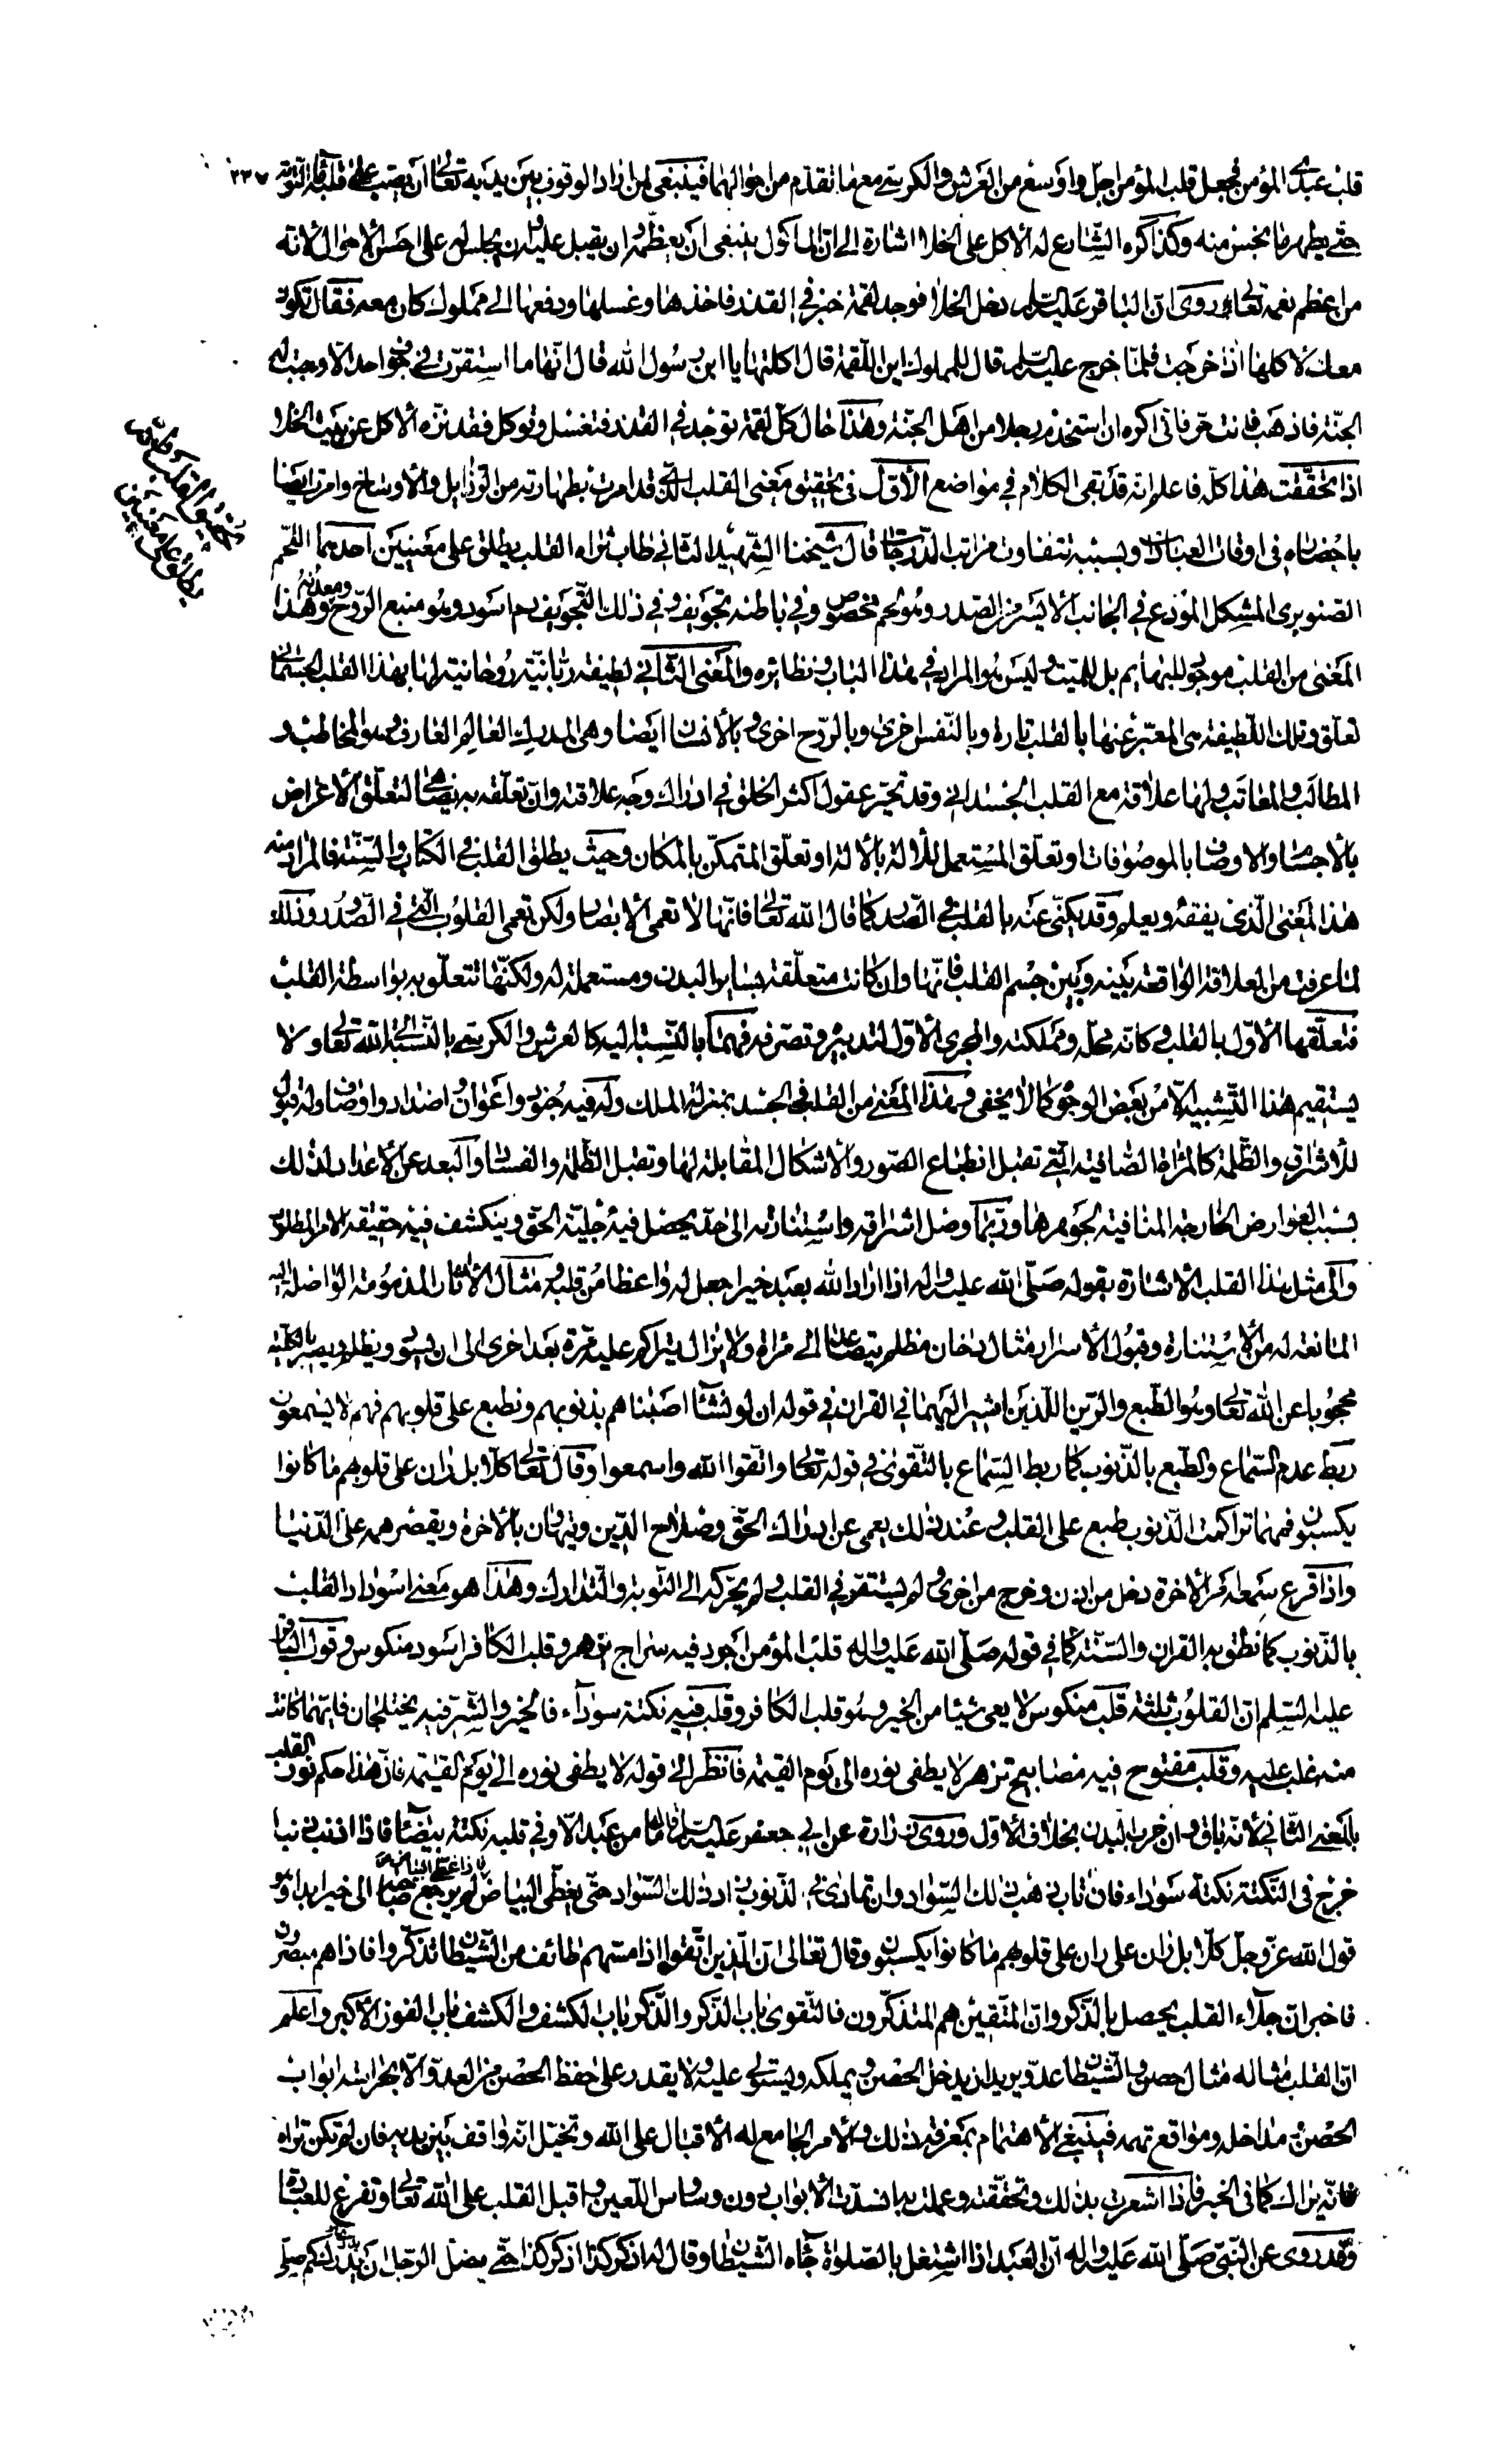 قلب عبدى المؤمن فجعل قلب المؤمن اجلّ واوسع من العرش والكرسى مع ما تقدم من احوالهما فينبغى لمن اراد الوقوف بين يديه تعالى ان يصب على قلبه ماء التوبة ٢٣٧
حتى يطهر ما نجس منه وكذا كره الشارع له الاكل على الخلا اشارة الى ان الماكول ينبغى ان يعظّم وان يقبل عليه وان يجلس له على احسن الاحوال لانه
من اعظم نعمه تعالى وروى ان الباقر عليه السلم دخل الخلا فوجد لقمة خبز فى القذر فاخذها وغسلها ودفعها الى مملوك كان معه فقال تكون
معك لاكلها اذا خرجت فلمّا خرج عليه السلم قال للمملوك اين اللقمة قال اكلتها يا ابن رسول الله قال انّها ما استقرّت فى جوف احد الّا وجبت له
الجنّة فاذهب فانت حر فانّى اكره ان استخدم رجلا من اهل الجنة وهذا حال كلّ لقمة توجد فى القذر فتغسل وتوكل فقد نزّه الاكل عن بيت الخلا
اذا تحققت هذا كلّه فاعلم انه قد بقى الكلام فى مواضع الاوّل فى تحقيق معنى القلب الذى قد امرت بطهارته من الرذايل والاوساخ وامرت ايضا
باحضاره فى اوقات العبادات وبسببه تتفاوت مراتب الدرجات قال شيخنا الشهيد الثانى طاب ثراه القلب يطلق على معنيين احدهما اللحم
الصنوبرى المشكل المودع فى الجانب الايسر من الصدر وهو لحم مخصوص وفى باطنه تجويف وفى ذلك التجويف دم اسود وهو منبع الروح ومعدنه وهذا
المعنى من القلب موجود للبهايم بل للميت وليس هو المراد فى هذا الباب ونظائره والمعنى الثانى لطيفة ربانيّة روحانية لها بهذا القلب الجسمانى
تعلق وتلك اللطيفة هى المعبّر عنها بالقلب تارة وبالنفس اخرى وبالروح اخرى وبالانسان ايضا وهى المدرك العالم العارف وهو المخاطب و
المطالب والمعاتب ولها علاقة مع القلب الجسدانى وقد تحيّر عقول اكثر الخلق فى ادراك وجه علاقته وان تعلّقه به يضاهى لتعلّق الاعراض
بالاجسام والاوصاف بالموصوفات او تعلّق المستعمل للالة بالالة او تعلّق المتمكّن بالمكان وحيث يطلق القلب فى الكتاب والسنّة فالمراد منه
هذا المعنى الّذى يفقه ويعلم وقد يكنّى عنه بالقلب فى الصدر كما قال الله تعالى فانّها لا تعمى الابصار ولكن تعمى القلوب التى فى الصدور وذلك
لما عرفت من العلاقة الواقعة بينه وبين جسم القلب فانّها وان كانت متعلّقة بساير البدن ومستعملة له ولكنّها تتعلّق به بواسطة القلب
فتعلّقها الاوّل بالقلب فكانه محلّه ومملكته والمجرى الاوّل لتدبيره وتصرفه فهما بالنسبة اليه كالعرش والكرسى بالنسبة الى الله تعالى ولا
يستقيم هذا التشبيه الّا من بعض الوجوه كما لا يخفى وهذا المعنى من القلب فى الجسد بمنزلة الملك وله فيه جنود واعوان واضداد واوصاف وله قبول
للاشراق والظلمة كالمراة الصافية التى تقبل انطباع الصور والاشكال المقابلة لها وتقبل الظلمة والفساد والبعد عن الاعداد لذلك
بسبب العوارض الخارجة المنافية لجوهرها وربّما وصل اشراقه واستنارته الى حدّ يحصل فيه جليّة الحق وينكشف فيه حقيقة الامر المطلوب
والى مثل هذا القلب الاشارة بقوله صلّى الله عليه واله اذا اراد الله بعبد خيرا جعل له واعظا من قلبه ومثال الاثار المذمومة الواصلة اليه
المانعة له من الاستنارة وقبول الاسرار مثال دخان مظلم يتصاعد الى مراة ولا يزال يتراكم عليه مرة بعد اخرى الى ان يسودّ ويظلم ويصير بالكليّة
محجوبا عن الله تعالى وهو الطبع والرين اللذين اشير اليهما فى القران فى قوله ان لو نشآ اصبناهم بذنوبهم ونطبع على قلوبهم فهم لا يسمعون
ربط عدم السماع والطبع بالذنوب كما ربط السماع بالتقوى فى قوله تعالى واتّقوا الله واسمعوا وقال تعالى كلّا بل ران على قلوبهم ما كانوا
يكسبون فمهما تراكمت الذنوب طبع على القلب وعند ذلك يعمى عن ادراك الحق وصلاح الدين ويتهاون بالاخرة ويقصر همه على الدنيا
واذا قرع سمعه امر الاخرة دخل من اذن وخرج من اخرى ولم يستقر فى القلب ولم يحرّكه الى التوبة والتدارك وهذا هو معنى اسوداد القلب
بالذنوب كما نطق به القران والسنّة كما فى قوله صلّى الله عليه واله قلب المؤمن اجرد فيه سراج يزهر وقلب الكافر اسود منكوس وقول الباقر
عليه السلم ان القلوب ثلثة قلب منكوس لا يعى شيئا من الخير وهو قلب الكافر وقلب فيه نكتة سوداء فالخير والشر فيه يختلجان فايّهما كانت
منه غلب عليه وقلب مفتوح فيه مصابيح تزهر لا يطفى نوره الى يوم القيمة فانظر الى قوله لا يطفى نوره الى يوم القيمة فانّ هذا حكم نور القلب
بالمعنى الثانى لانّه باق وان خرب البدن بخلاف الاوّل وروى زرارة عن ابى جعفر عليه السلم قال ما من عبد الّا وفى قلبه نكتة بيضآء فاذا اذنب ذنبا
خرج فى النكتة نكتة سوداء فان تاب ذهب ذلك السواد وان تمادى فى الذنوب زاد ذلك السواد حتّى يغطّى البياض فاذا غطّى البياض لم يرجع صاحبه الى خير ابدا وهو
قول الله عزّ وجلّ كلّا بل ران على قلوبهم ما كانوا يكسبون وقال تعالى انّ الّذين اتّقوا اذا مسّهم طائف من الشيطان تذكّروا فاذا هم مبصرون
فاخبر انّ جلآء القلب يحصل بالذكر وانّ المتّقين هم المتذكّرون فالتقوى باب الذكر والذكر باب الكشف والكشف باب الفوز الاكبر واعلم
انّ القلب مثاله مثال حصن والشيطان عدوّ يريد ان يدخل الحصن ويملكه ويستولى عليه ولا يقدر على حفظ الحصن من العدوّ الّا بحراسة ابواب
الحصن ومداخله ومواقع ثلمه فينبغى الاهتمام بمعرفة ذلك والامر الجامع له الاقبال على الله وتخيّل انّه واقف بين يديه فان لم تكن تراه
فانّه يراك كما فى الخبر فاذا اشعرت بذلك وتحقّقته وعملت به انسدّت الابواب دون وساوس اللعين واقبل القلب على الله تعالى وتفرغ للعبادة
وقد روى عن النبىّ صلّى الله عليه واله انّ العبد اذا اشتغل بالصلوة جآءه الشيطان وقال له اذكر كذا اذكر كذا حتّى يضلّ الرجل ان يدرى كم صلّى